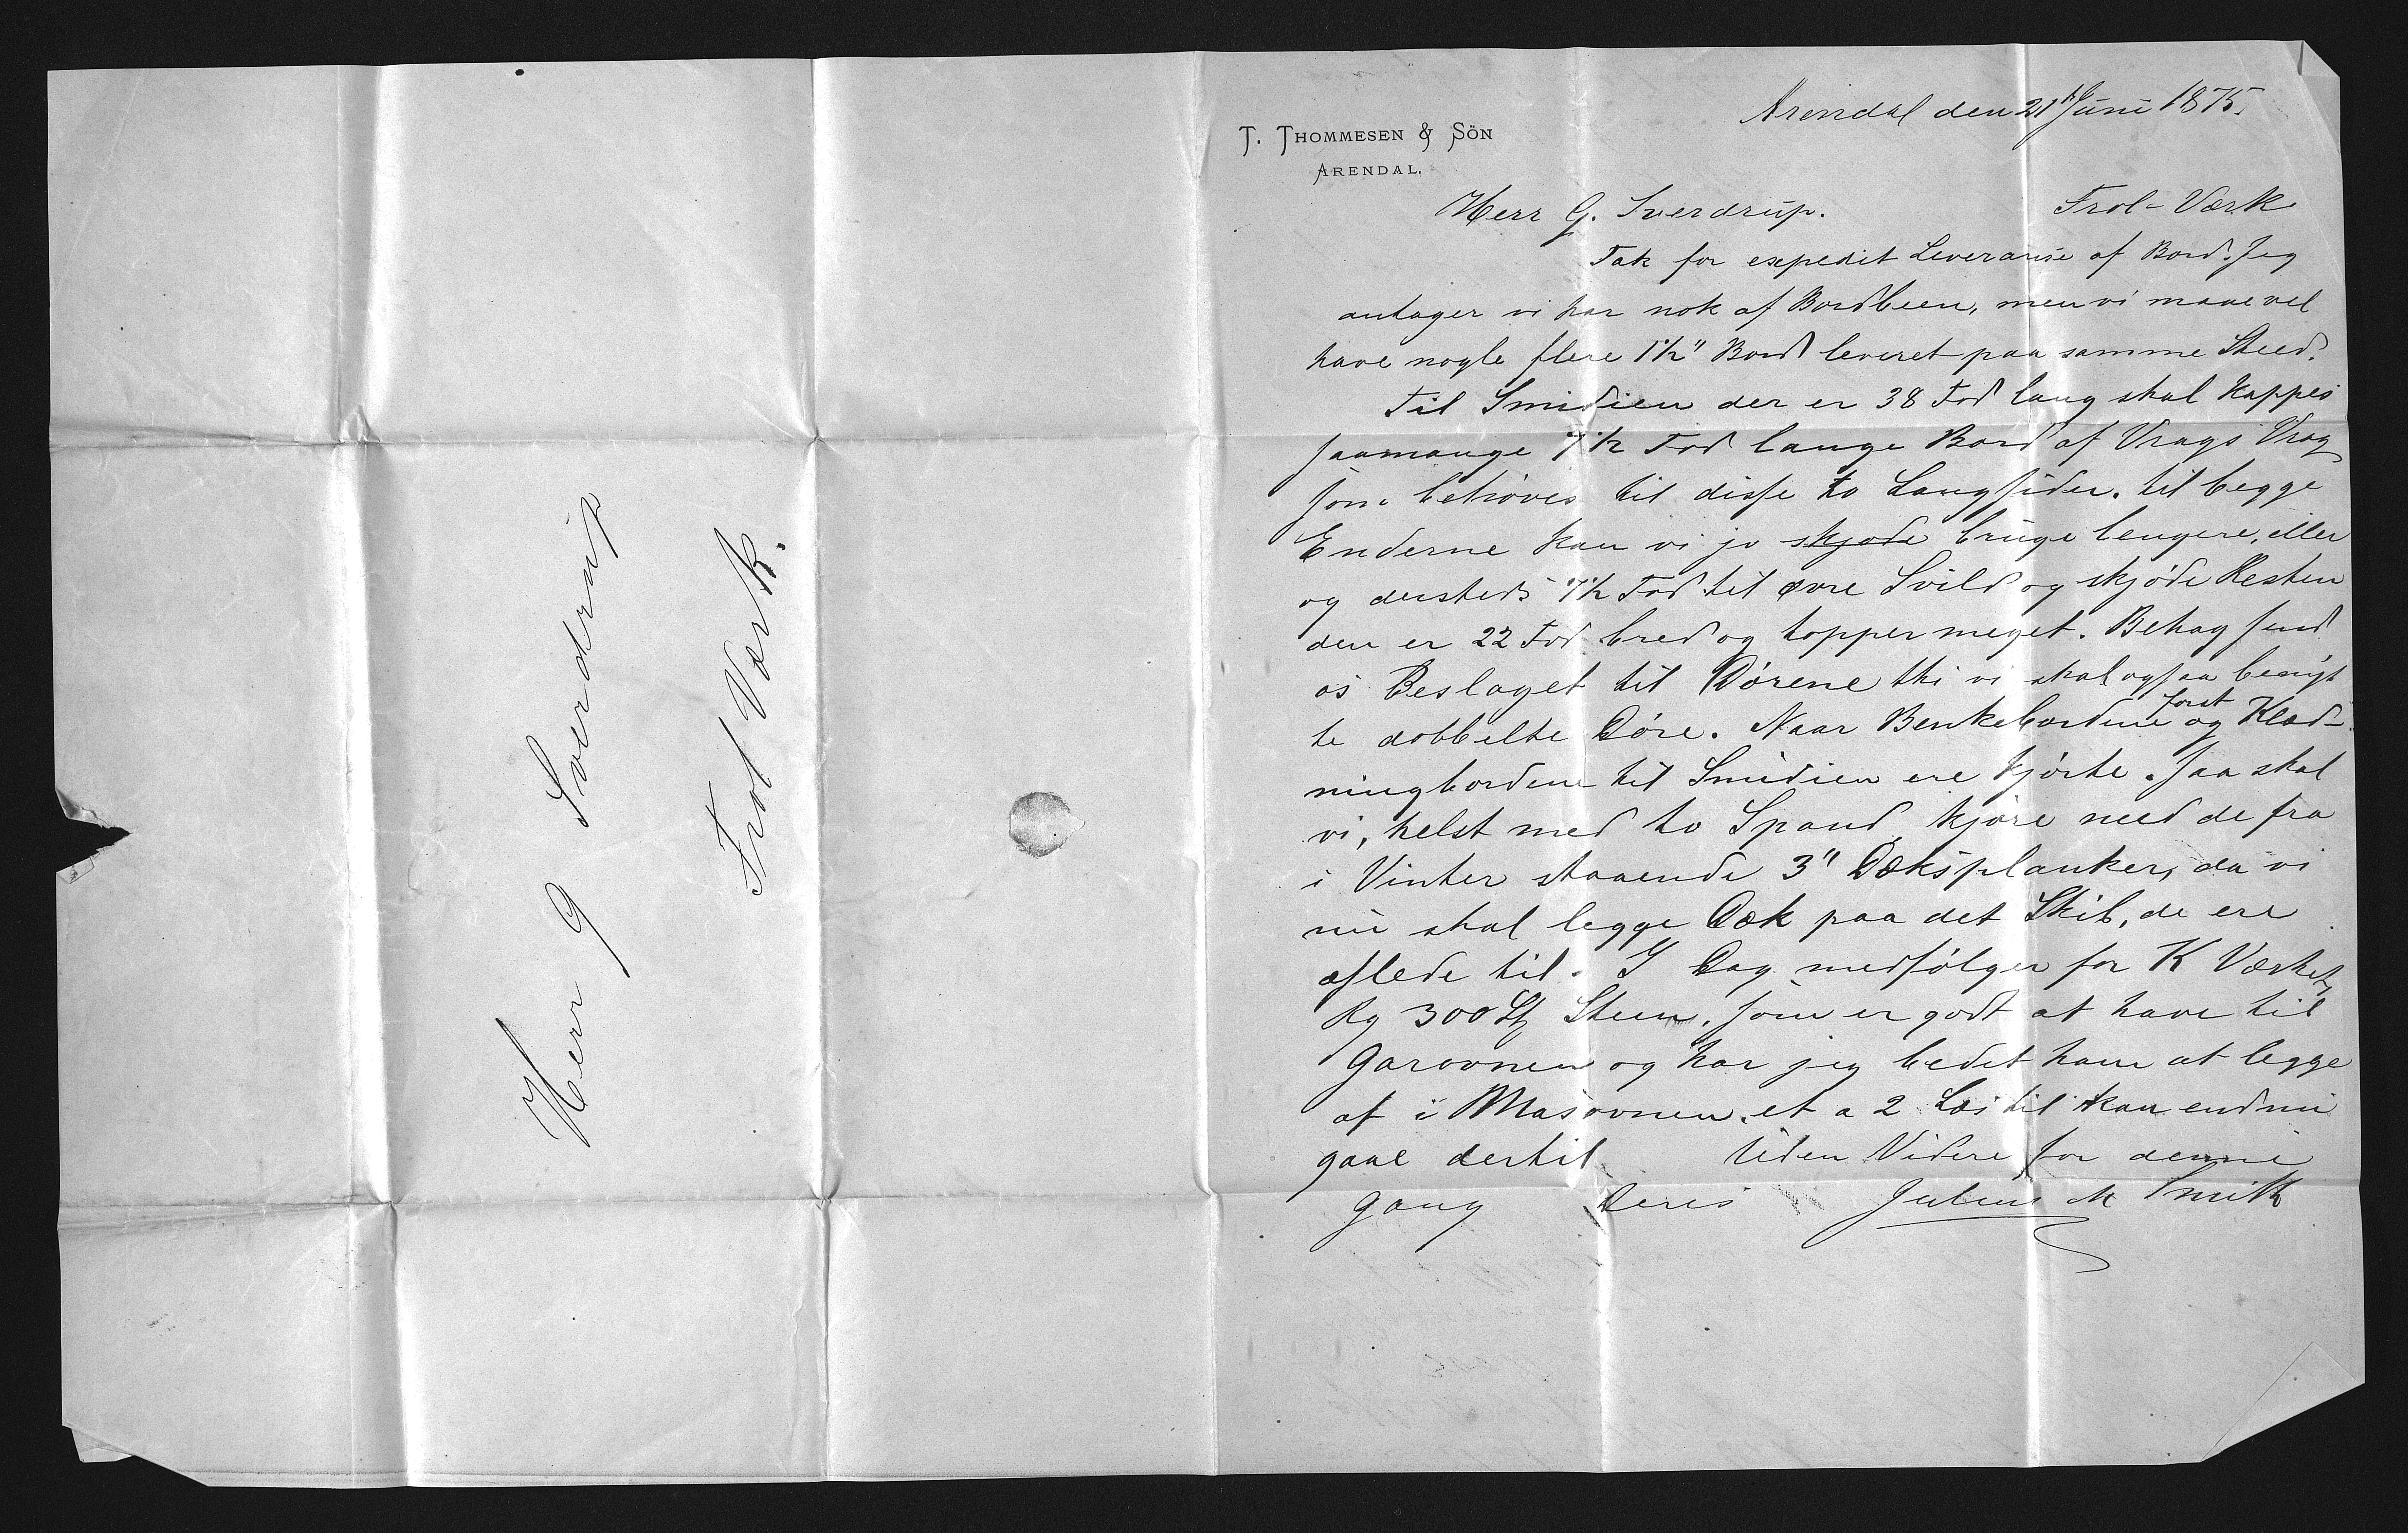 Herr G Sverdrup
Frol Værk.
T. THOMMESEN & SÖN
ARENDAL.
Arendal den 21 Juni 1875.
Herr G. Sverdrup. Frol-Værk
Tak for expedit Leveranse af Bord. Jeg
antager vi har nok af Bordbeen, men vi maae vel
have nogle flere 1½" Bord leveret paa samme Steed.
Til Smidien der er 38 Fod lang skal kappes
saamange 7½ Fod lange Bord af Vrags Vrag
som behøves til disse to Langsider. til begge
Enderne kan vi jo skjøde bruge lengere, eller
og dersteds 7½ Fod til øvre Svild og skjøde Resten
den er 22 Fod bred og topper meget. Behag send
os Beslaget til Dørene thi vi skal ogsaa benyt
te dobbelte Døre. Naar Benkebordene først og Klæd-
ningbordene til Smidien ere kjørte. saa skal
vi, helst med to Spand, kjøre need de fra
i Vinter staaende 3" Dæksplanker, da vi
nu skal legge Dæk paa det Skib, de ere
aflede til. I Dag medfølger for K Værket
300 Steen, som er godt at have til
Garovnen og har jeg bedet ham at legge
af i Masovnen. et a 2 Læs til kan endnu
gaae dertil Uden Videre for denne
gang Deres Julius M Smith